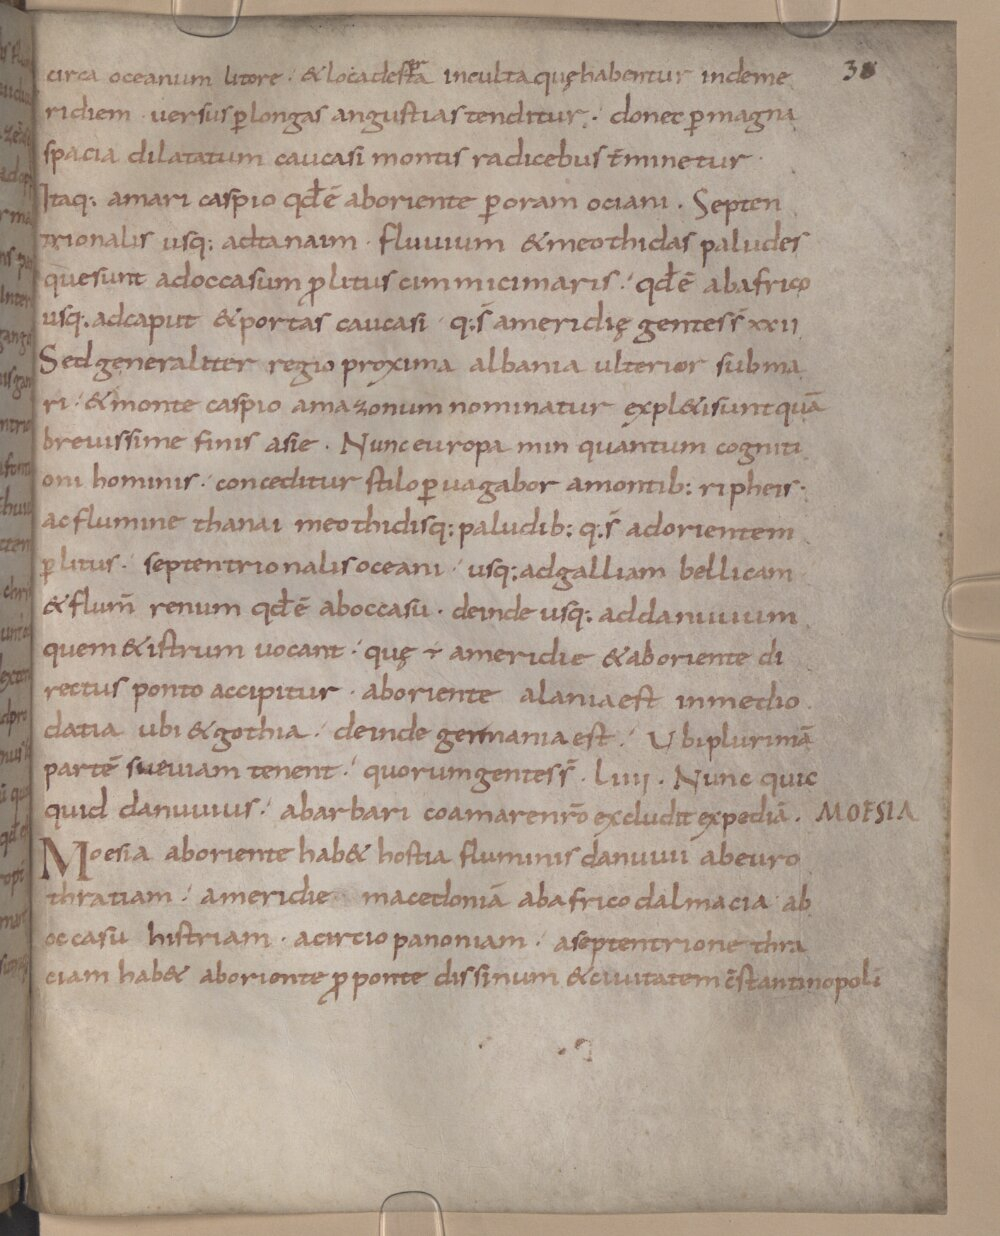 38
circa oceanum litore · & loca deserta inculta quę habentur inde me
ridiem · uersus ꝑ longas angustias tenditur · donec ꝑ magna
spacia dilatatum caucasi montis radicebus t̄minetur ·
Itaq: amari caspio qđ ē aboriente ꝑ oram ociani · Septen
trionalis usq: ad tanaim · fluuium & meothidas paludes
que sunt ad occasum ꝓ litus cimmici maris · qđ ē ab africo
usq: ad caput & portas caucasi · q: s̄ ameridię gentes s̄ xxii
Sed generaliter regio proxima albania ulterior sub ma
ri · & monte caspio amazonum nominatur expl&i sunt quā
breuissime finis asie · Nunc europa min quantum cogniti
oni hominis · conceditur stilo ꝑuagabor amontib: ripheis ·
ac flumine thanai meothidisq: paludib: q: s̄ ad orientem
ꝑ litus · septentrionalis oceani · usq: ad galliam bellicam
& flum̄ renum qđ ē ab occasu · deinde usq: ad danuuium
quem & istrum uocant · quę ÷ ameridie & ab oriente di
rectus ponto accipitur · ab oriente alania est in medio
datia ubi & gothia · deinde germania est · Ubi plurimā
partē sueuiam tenent · quorum gentes s̄ · liiii · Nunc quic
quid danuuius · abarbari coamarenr̄o excludit expediā · MOESIA
Moesia ab oriente hab& hostia fluminis danuuii ab euro
thratiam · ameridie macedoniā ab africo dalmacia ab
occasu histriam · acircio panoniam · aseptentrione thra
ciam hab& aborionte ꝓponte dis sinum & ciuitatem c̄stantinopoli